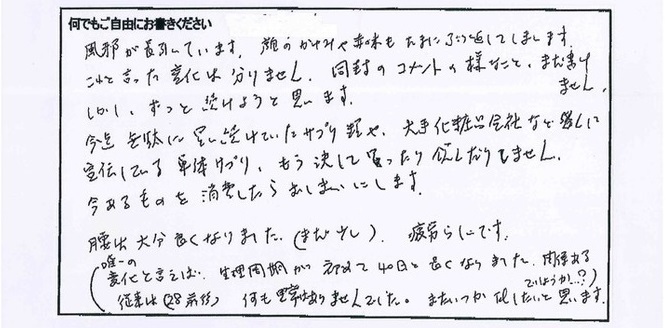 何でもご自由にお書きください
風邪が長引いています。顔のかゆみや赤味もたまにぶり返してしまします。
これと言った変化は分りません。同封のコメントの様なこと、まだ書けません。
しかし、ずっと続けようと思います。
今迄無駄に買い続けていたサプリ類や、大手化粧品会社など
宣伝している単体サプリ、もう決して買ったり飲んだりしません。
今あるものを消費したらおしまいにします。
腰は大分良くなりました。(まだ少し)。疲労らしいです。
(唯一の変化と言えば、生理周期が初めて40日と長くなりました。関係あるでしょうか…?)
従来は(28前後) 何も異常はありませんでした。またいつかTELしたいと思います。